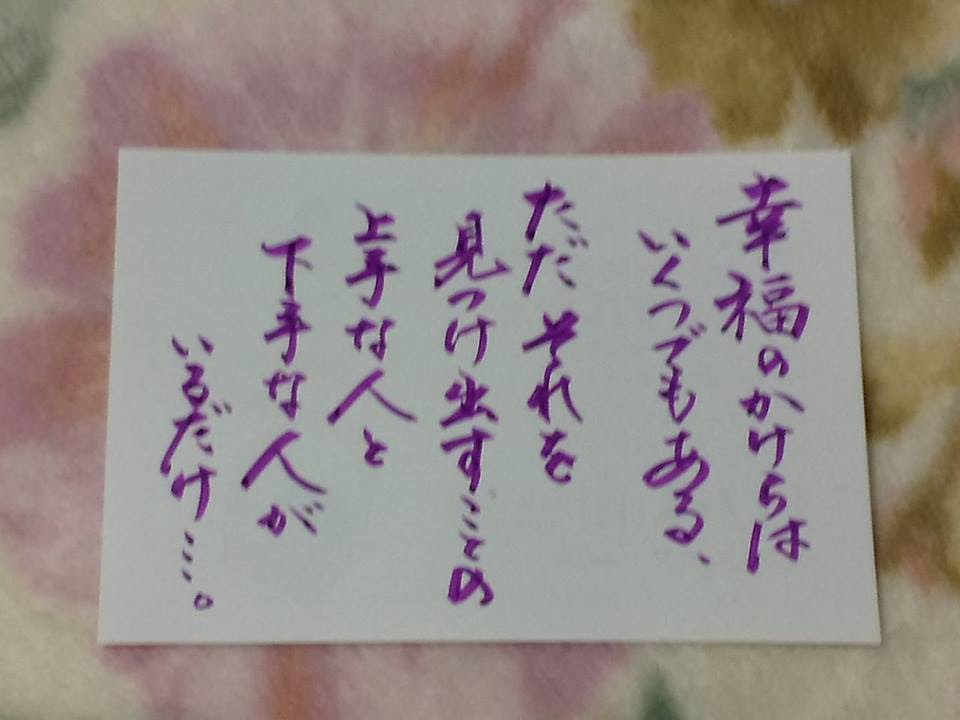 幸福のかけらは
いくつでもある、
ただそれを
見つけ出すことの
上手な人と
下手な人が
いるだけ…。